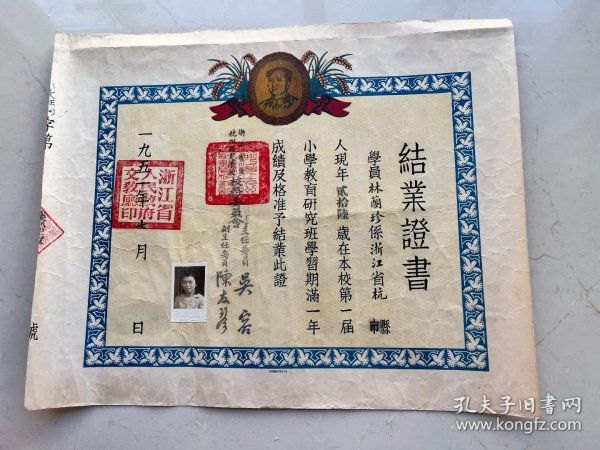 結業證書
學員林蘭珍係浙江省杭
縣
市
人現年貳拾陸歲在本校第一屆
小學教育研究班學習期滿一年
成績及格准予結業此證
主任委員 吳容
副主任委員 陳友琴
一九五一年七月 日
浙江省
人民政府
文教廳印
字第
號
孔夫子旧书网
www.kongfz.com